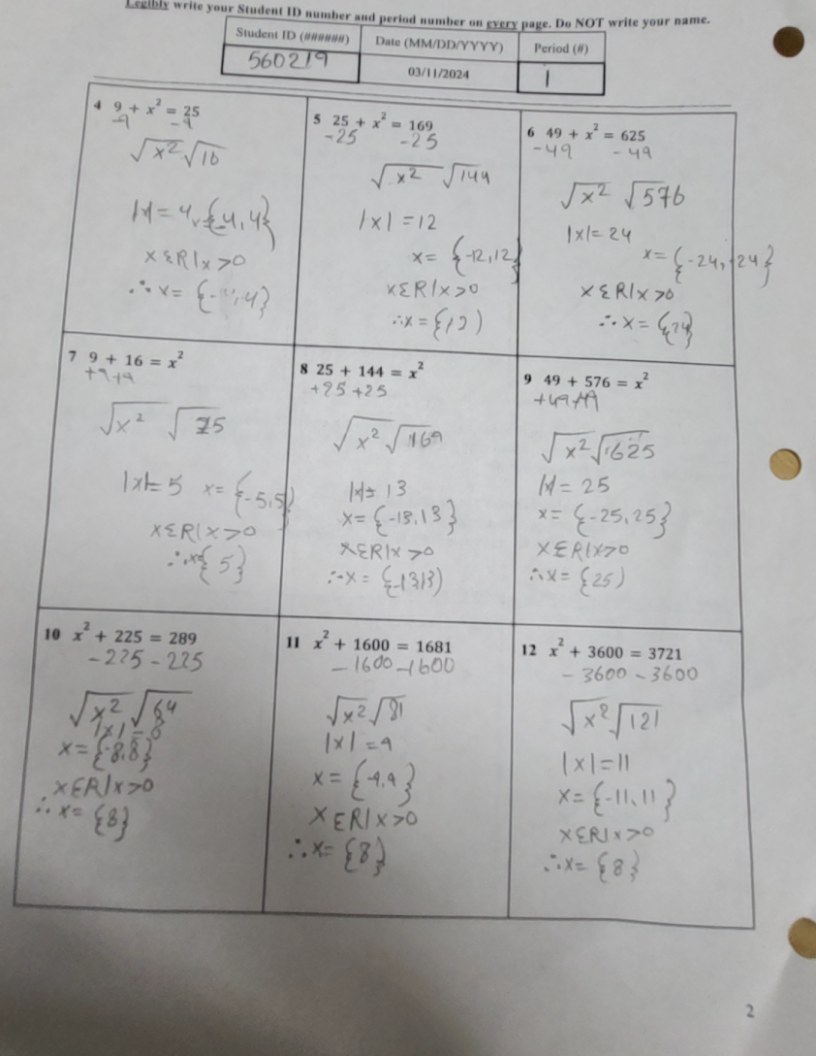 Legibly write your Student ID number and period number on every page. Do NOT write your name.
Student ID (######) Date (MM/DD/YYYY) Period (#)
560219 03/11/2024 1
4 9 + x² = 25
-9 -9
√x² √16
|x| = 4, {-4, 4}
xƐR|x>0
∴ x = {-4,4}
5 25 + x² = 169
-25 -25
√x² √144
|x| = 12
x = {-12,12}
xƐR|x>0
∴x = {12)
6 49 + x² = 625
-49 -49
√x² √576
|x| = 24
x = {-24, 24}
xƐR|x>0
∴ x = {24}
7 9 + 16 = x²
+9 +9
√x² √25
|x| = 5 x = {-5,5}
xƐR|x>0
∴x={5}
8 25 + 144 = x²
+25 +25
√x² √169
|x|= 13
x = {-13,13}
xƐR|x>0
∴x = {-1313)
9 49 + 576 = x²
+49 +49
√x² √625
|x| = 25
x = {-25,25}
xƐR|x>0
∴x = {25)
10 x² + 225 = 289
-225 -225
√x² √64
|x| = 8
x = {-8,8}
xƐR|x>0
∴ x = {8}
11 x² + 1600 = 1681
-1600 -1600
√x² √81
|x| = 9
x = {-9,9}
xƐR|x>0
∴x = {8}
12 x² + 3600 = 3721
-3600 -3600
√x² √121
|x| = 11
x = {-11,11}
xƐR|x>0
∴x = {8}
2